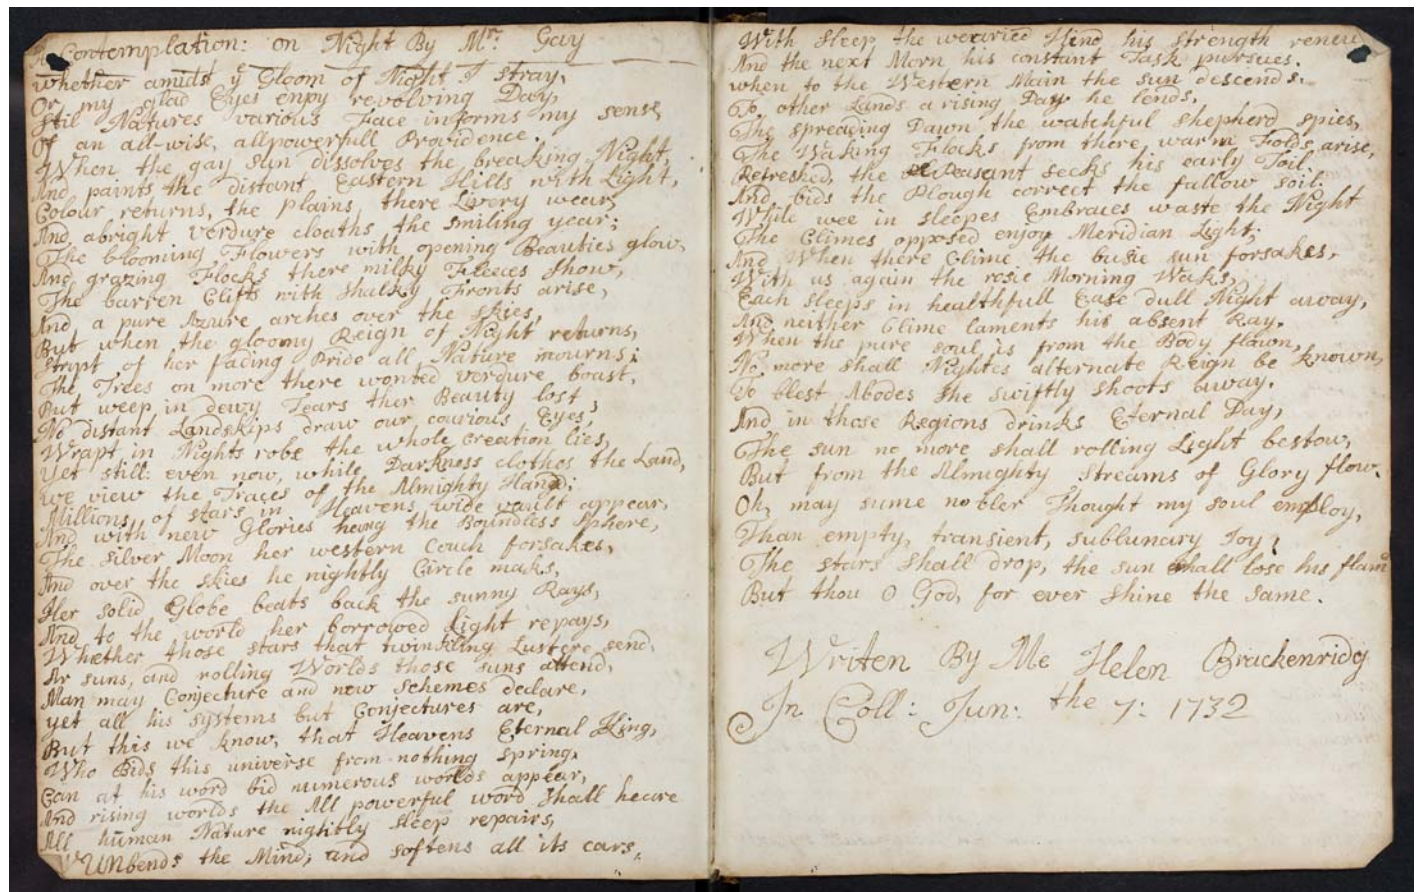 A Contemplation: on Night By Mr. Gay
whether amidst ye Gloom of Night I stray,
Or my glad Eyes enjoy revolving Day,
Stil Natures various Face informs my sense,
Of an all-wise, allpowerfull Providence.
When the gay sun dissolves the breaking Night,
And paints the distant Eastern Hills with Light,
Colour returns, the plains there Livery wear,
And abright verdure cloaths the smiling year;
The blooming Flowers with opening Beauties glow,
And grazing Flocks there milky Fleeces show,
The barren Clifts with shalky Fronts arise,
And a pure Azure arches over the skies,
But when the gloomy Reign of Night returns,
stript of her fading Pride all Nature mourns;
The Trees on more there wonted verdure boast,
But weep in dewy Tears ther Beauty lost;
No distant Landskips draw our courious Eyes,
Wrapt in Nights robe the whole creation lies,
Yet still even now, while Darkness clothes the Land,
we view the Traces of the Almighty Hand;
Millions of stars in Heavens wide vault appear,
And with new Glories hang the Boundless sphere,
The silver Moon her western Couch forsakes,
And over the skies he nightly Circle maks,
Her solid Globe beats back the sunny Rays,
And to the world her borrowed Light repays,
Whether those stars that twinkling Lustere send,
Ar suns, and rolling Worlds those suns attend,
Man may Conjecture and new schemes declare,
yet all his systems but Conjectures are,
But this we know, that Heavens Eternal King,
Who Bids this universe from nothing spring,
Can at his word bid numerous worlds appear,
And rising worlds the All powerful word shall heare
All human Nature nightbly sleep repairs,
UNbends the Mind, and softens all its cars,
With sleep the wearied Hind his strength renew
And the next Morn his constant Task pursues.
when to the Western Main the sun descends,
To other Lands a rising Day he lends,
The spreading Dawn the watchful shepherd spies,
The Waking Flocks from there warm Folds arise,
Refreshed, the Peasant seeks his early Toil
And bids the Plough correct the fallow soil:
While wee in sleepes Embraces waste the Night
The Climes opposed enjoy Meridian Light;
And When there Clime the busie sun forsakes,
With us again the rosie Morning Waks,
Each sleeps in healthfull Ease dull Night away,
And neither Clime laments his absent Ray.
When the pure soul is from the Body flown,
No more shall Nightes alternate Reign be known,
To blest Abodes she swiftly shoots away.
And in those Regions drinks Eternal Day,
The sun no more shall rolling Light bestow,
But from the Almighty Streams of Glory flow.
Oh, may sume nobler Thought my soul employ,
Than empty, transient, sublunary Joy;
The stars shall drop, the sun shall lose his flam
But thou O God, for ever shine the same.
Writen By Me Helen Brackenridg
In Coll: Jun: the 7: 1732